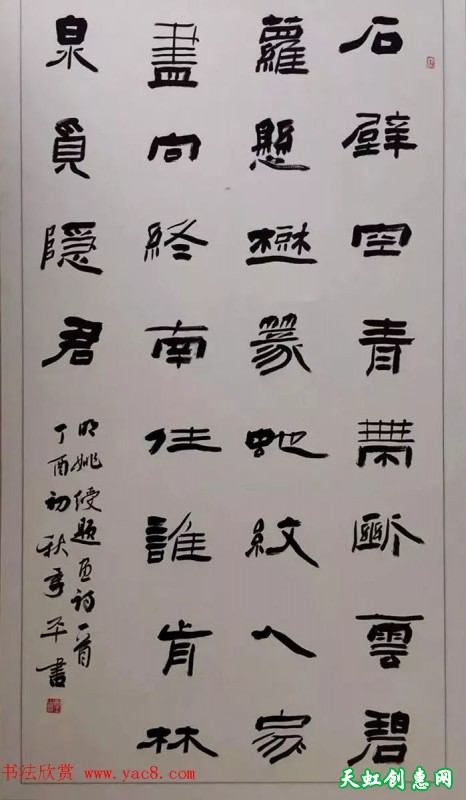 石壁空青帶斷雲碧
蘿懸篆虵紋人家
盡向終南住誰肯林
泉覓隱君
明姚绶题画诗一首
丁酉初秋平書
书法欣赏 www.yac8.com
天虹创惠网